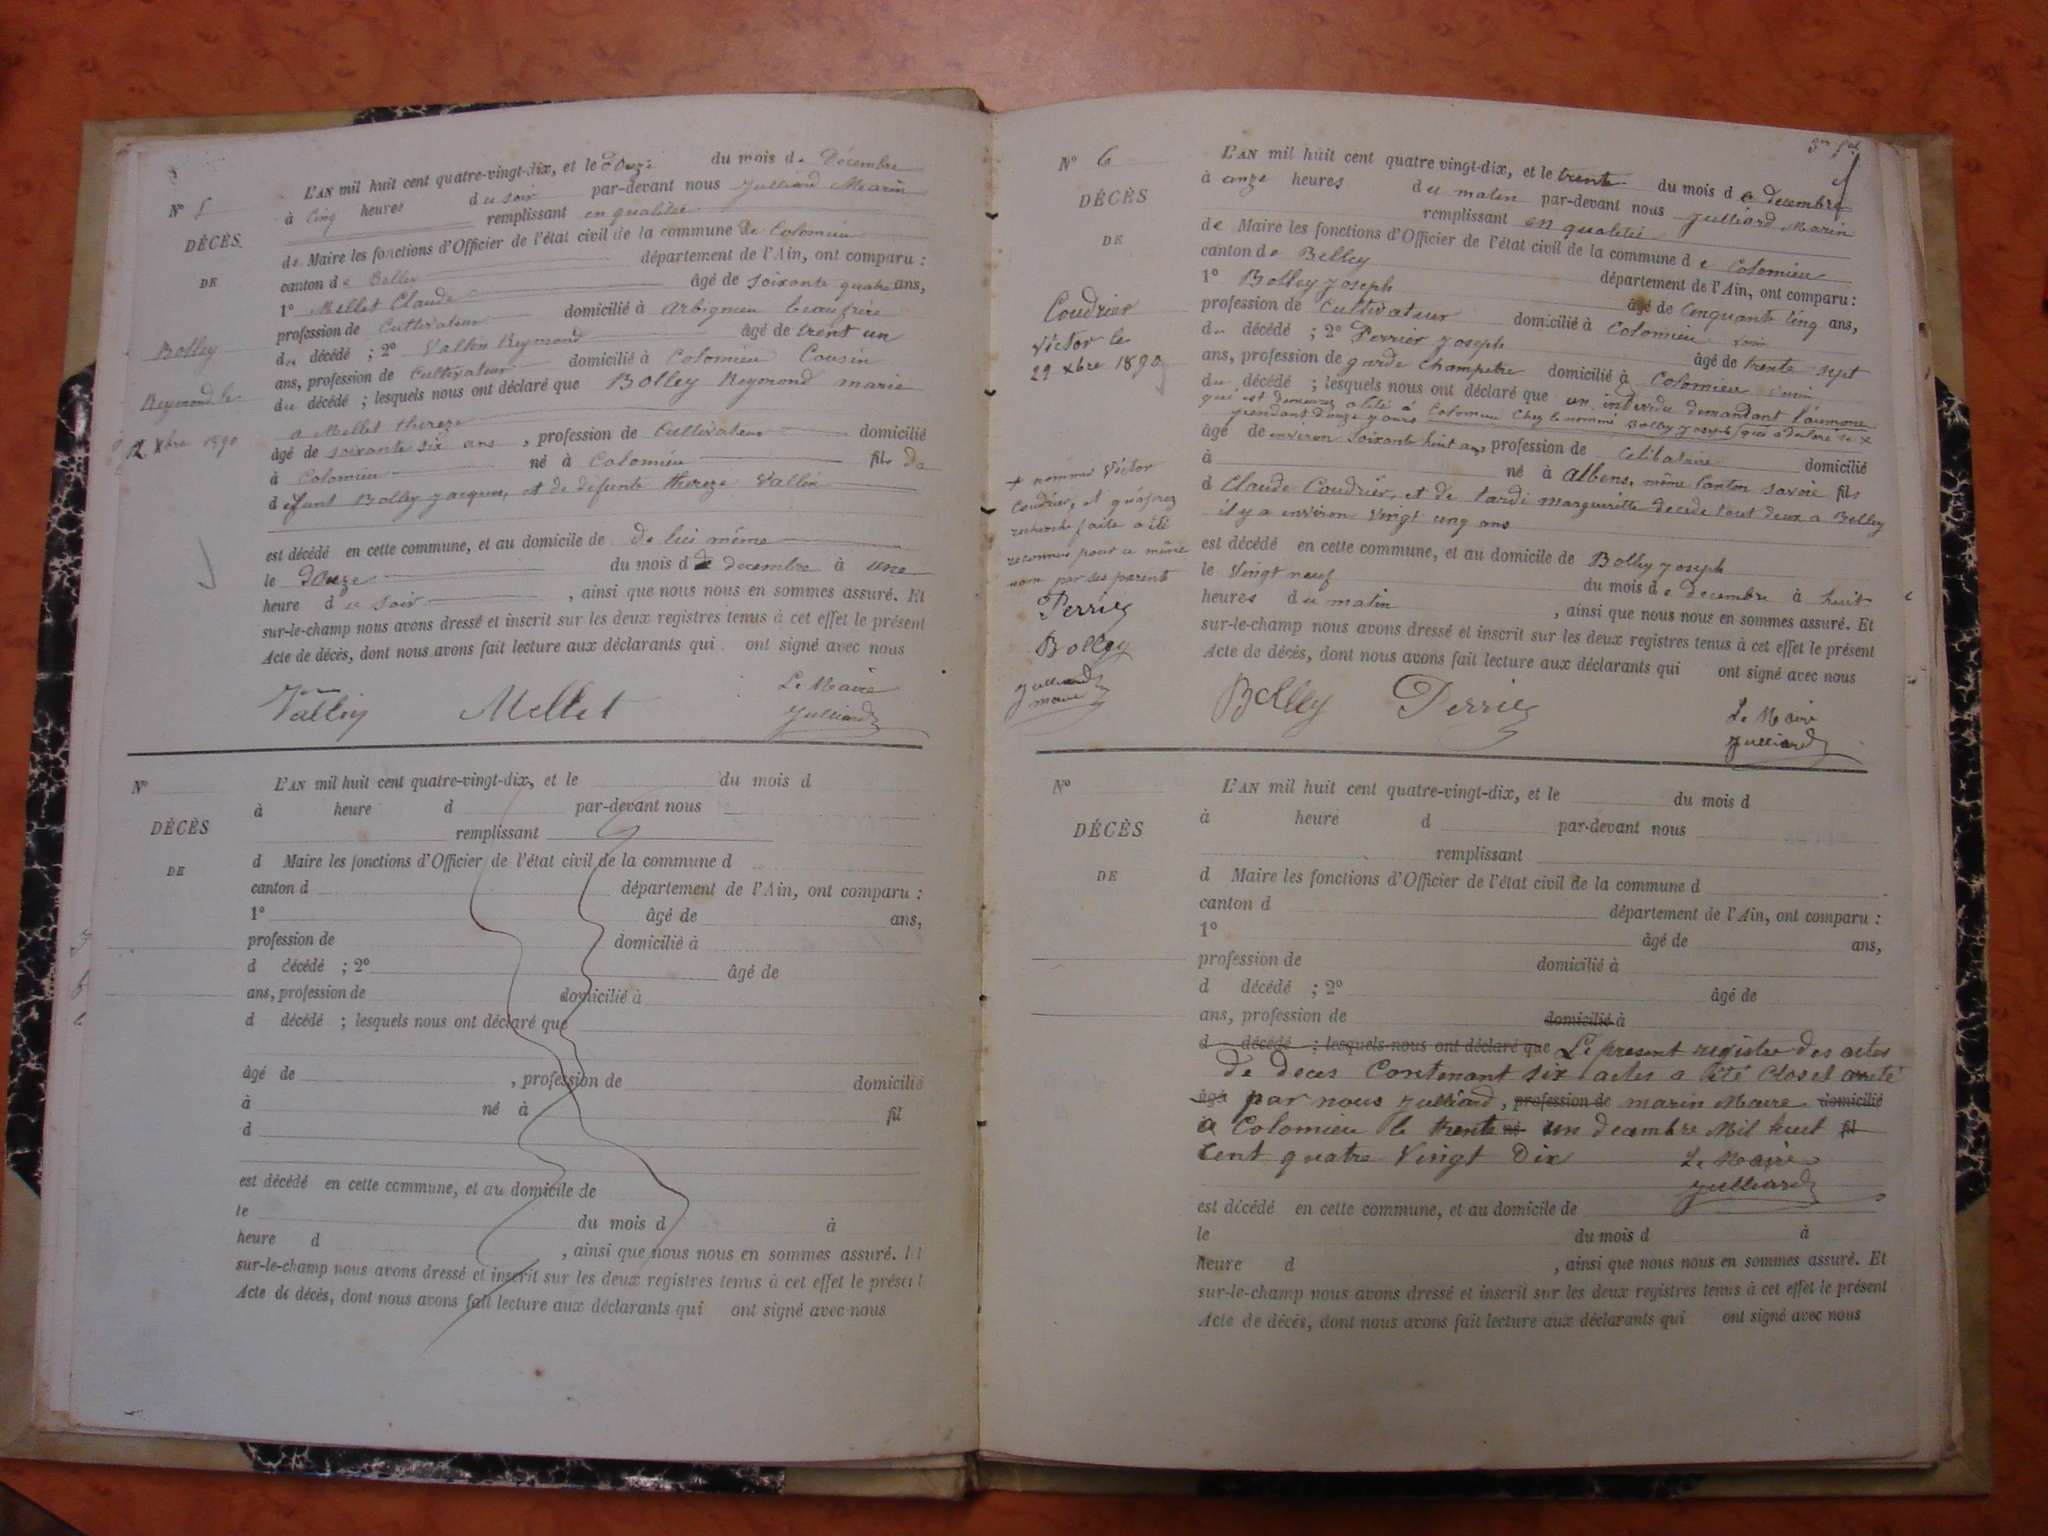 N° 5
DÉCÈS
DE
Bolley
Reymond le
12 Xbre 1890
L'AN mil huit cent quatre-vingt-dix, et le douze du mois de Décembre
à Cinq heures du soir par-devant nous Julliard Marin
remplissant en qualitée
de Maire les fonctions d'Officier de l'état civil de la commune de Colomieu
canton de Belley département de l'Ain, ont comparu :
1° Mellet Claude âgé de soixante quatre ans,
profession de Cultivateur domicilié à Arbignieu beaufrère
du décédé ; 2° Vallin Reymond âgé de trent un
ans, profession de Cultivateur domicilié à Colomieu Cousin
du décédé ; lesquels nous ont déclaré que Bolley Reymond marié
a Mellet thereze
âgé de soixante six ans , profession de Cultivateur domicilié
à Colomieu né à Colomieu fils de
défunt Bolley Jacques, et de défunte thereze Vallin
est décédé en cette commune, et au domicile de de lui même
le douze du mois de decembre à une
heure du soir , ainsi que nous nous en sommes assuré. Et
sur-le-champ nous avons dressé et inscrit sur les deux registres tenus à cet effet le présent
Acte de décès, dont nous avons fait lecture aux déclarants qui ont signé avec nous
Vallin Mellet Le Maire
Julliard
N°
DÉCÈS
DE
L'AN mil huit cent quatre-vingt-dix, et le du mois d
à heure d par-devant nous
remplissant
d Maire les fonctions d'Officier de l'état civil de la commune d
canton d département de l'Ain, ont comparu :
1° âgé de ans,
profession de domicilié à
d décédé ; 2° âgé de
ans, profession de domicilié à
d décédé ; lesquels nous ont déclaré que
âgé de , profession de domicilié
à né à fil
d
est décédé en cette commune, et au domicile de
le du mois d à
heure d , ainsi que nous nous en sommes assuré. Et
sur-le-champ nous avons dressé et inscrit sur les deux registres tenus à cet effet le présent
Acte de décès, dont nous avons fait lecture aux déclarants qui ont signé avec nous
N° 6
DÉCÈS
DE
Coudrier
Victor le
29 Xbre 1890
+ nommé Victor
Coudrier, et qu'apres
recherche faite a été
reconnus pour ce même
nom par ses parents
Perrier
Bolley
Julliard
maire
L'AN mil huit cent quatre vingt-dix, et le trente du mois de decembre
à onze heures du matin par-devant nous Julliard Marin
remplissant en qualitée
de Maire les fonctions d'Officier de l'état civil de la commune de Colomieu
canton de Belley département de l'Ain, ont comparu :
1° Bolley Joseph âgé de Cinquante Cinq ans,
profession de Cultivateur domicilié à Colomieu
du décédé ; 2° Perrier Joseph âgé de trente sept
ans, profession de garde Champetre domicilié à Colomieu
du décédé ; lesquels nous ont déclaré que un individu demandant l'aumone
qui est demeurez alité a Colomieu Chez le nommé Bolley Joseph
pendant douze jours qui a déclaré se x
âgé de environ soixante huit ans profession de Célibataire domicilié
à né à Albens, même Canton savoie fils
d Claude Coudrier, et de tardi margueritte decede tout deux a Belley
il y a environ vingt cinq ans
est décédé en cette commune, et au domicile de Bolley Joseph
le Vingt neuf du mois de decembre à huit
heures du matin , ainsi que nous nous en sommes assuré. Et
sur-le-champ nous avons dressé et inscrit sur les deux registres tenus à cet effet le présent
Acte de décès, dont nous avons fait lecture aux déclarants qui ont signé avec nous
Bolley Perrier Le Maire
Julliard
N°
DÉCÈS
DE
L'AN mil huit cent quatre-vingt-dix, et le du mois d
à heure d par-devant nous
remplissant
d Maire les fonctions d'Officier de l'état civil de la commune d
canton d département de l'Ain, ont comparu :
1° âgé de ans,
profession de domicilié à
d décédé ; 2° âgé de
ans, profession de domicilié à
d décédé ; lesquels nous ont déclaré que Le present registre des actes
de deces Contenant six actes a été Clos et arreté
âgé par nous Julliard, profession de marin Maire domicilié
à Colomieu le trente né un decembre Mil huit fil
Cent quatre Vingt Dix Le Maire
Julliard
est décédé en cette commune, et au domicile de
le du mois d à
heure d , ainsi que nous nous en sommes assuré. Et
sur-le-champ nous avons dressé et inscrit sur les deux registres tenus à cet effet le présent
Acte de décès, dont nous avons fait lecture aux déclarants qui ont signé avec nous